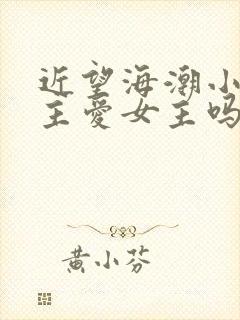 近望海潮小
主爱女主吗
黄小芬